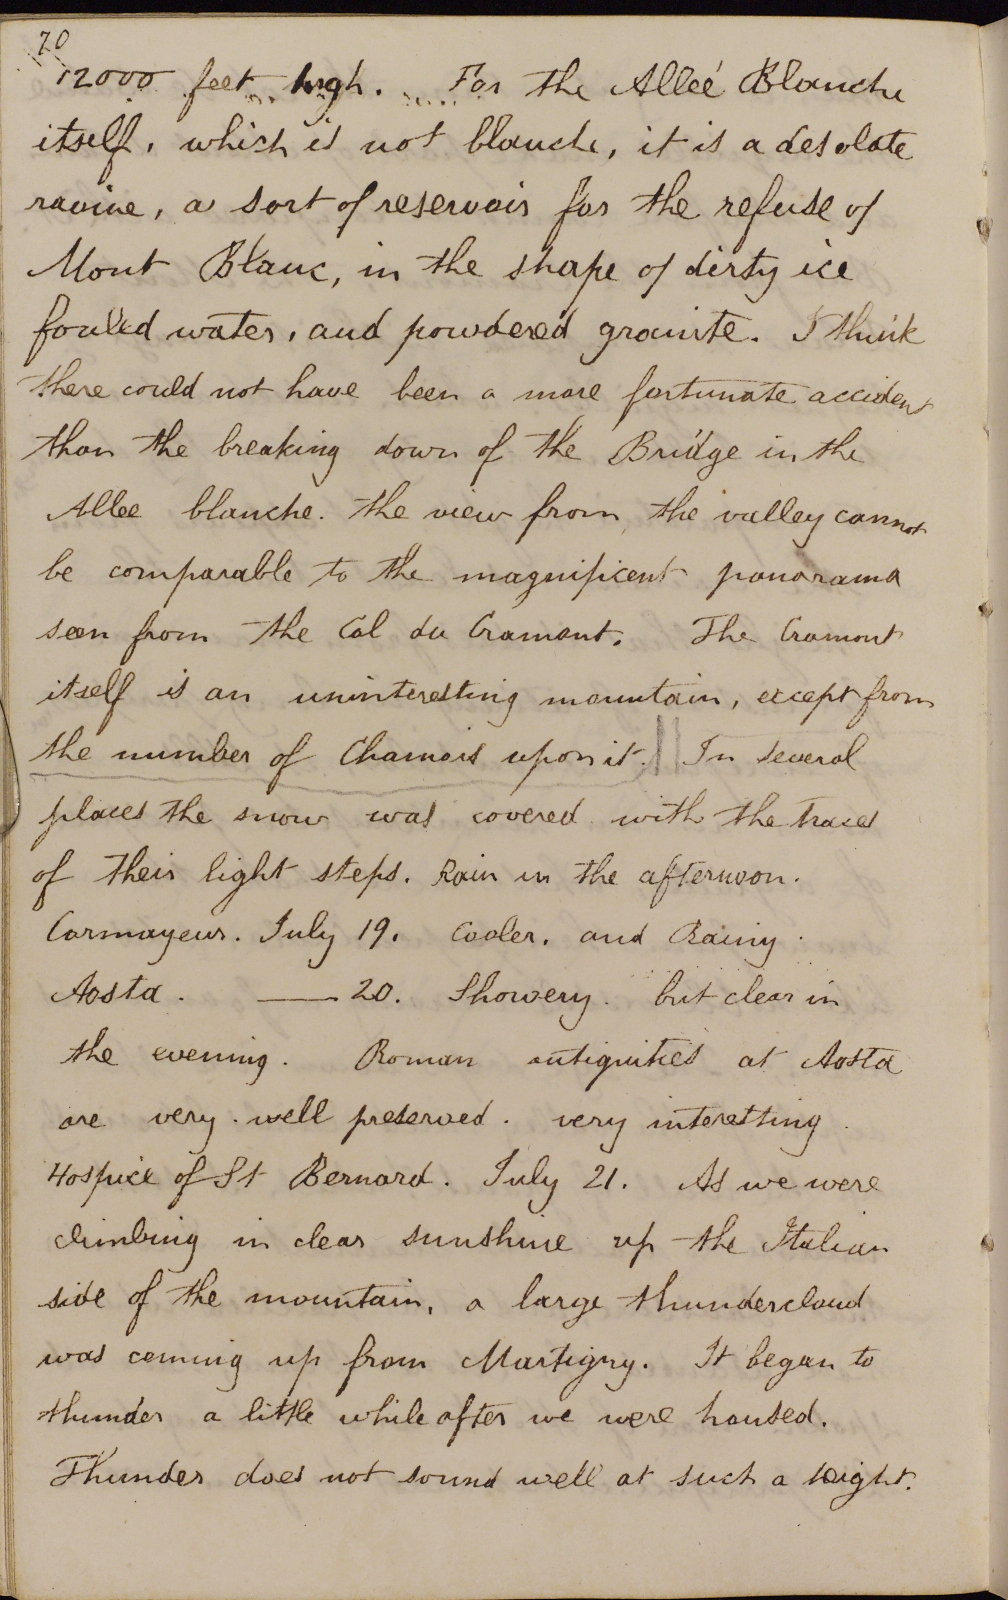 70
12000 feet high. For the Alleé Blanche
itself, which is not blanche, it is a desolate
ravine, a sort of reservoir for the refuse of
Mont Blanc, in the shape of dirty ice
fouled water, and powdered granite. I think
there could not have been a more fortunate accident
than the breaking down of the Bridge in the
Allee blanche. the view from the valley cannot
be comparable to the magnificent panorama
seen from the Col du Cramont. The Cramont
itself is an uninteresting mountain, except from
the number of Chamois upon it. || In several
places the snow was covered with the traces
of their light steps. Rain in the afternoon.
Cormayeur. July 19. Cooler. and Rainy.
Aosta. —— 20. Showery. but clear in
the evening. Roman antiquities at Aosta
are very well preserved. very interesting.
Hospice of St Bernard. July 21. As we were
climbing in clear sunshine up the Italian
side of the mountain, a large thundercloud
was coming up from Martigny. It began to
thunder a little while after we were housed.
Thunder does not sound well at such a height.